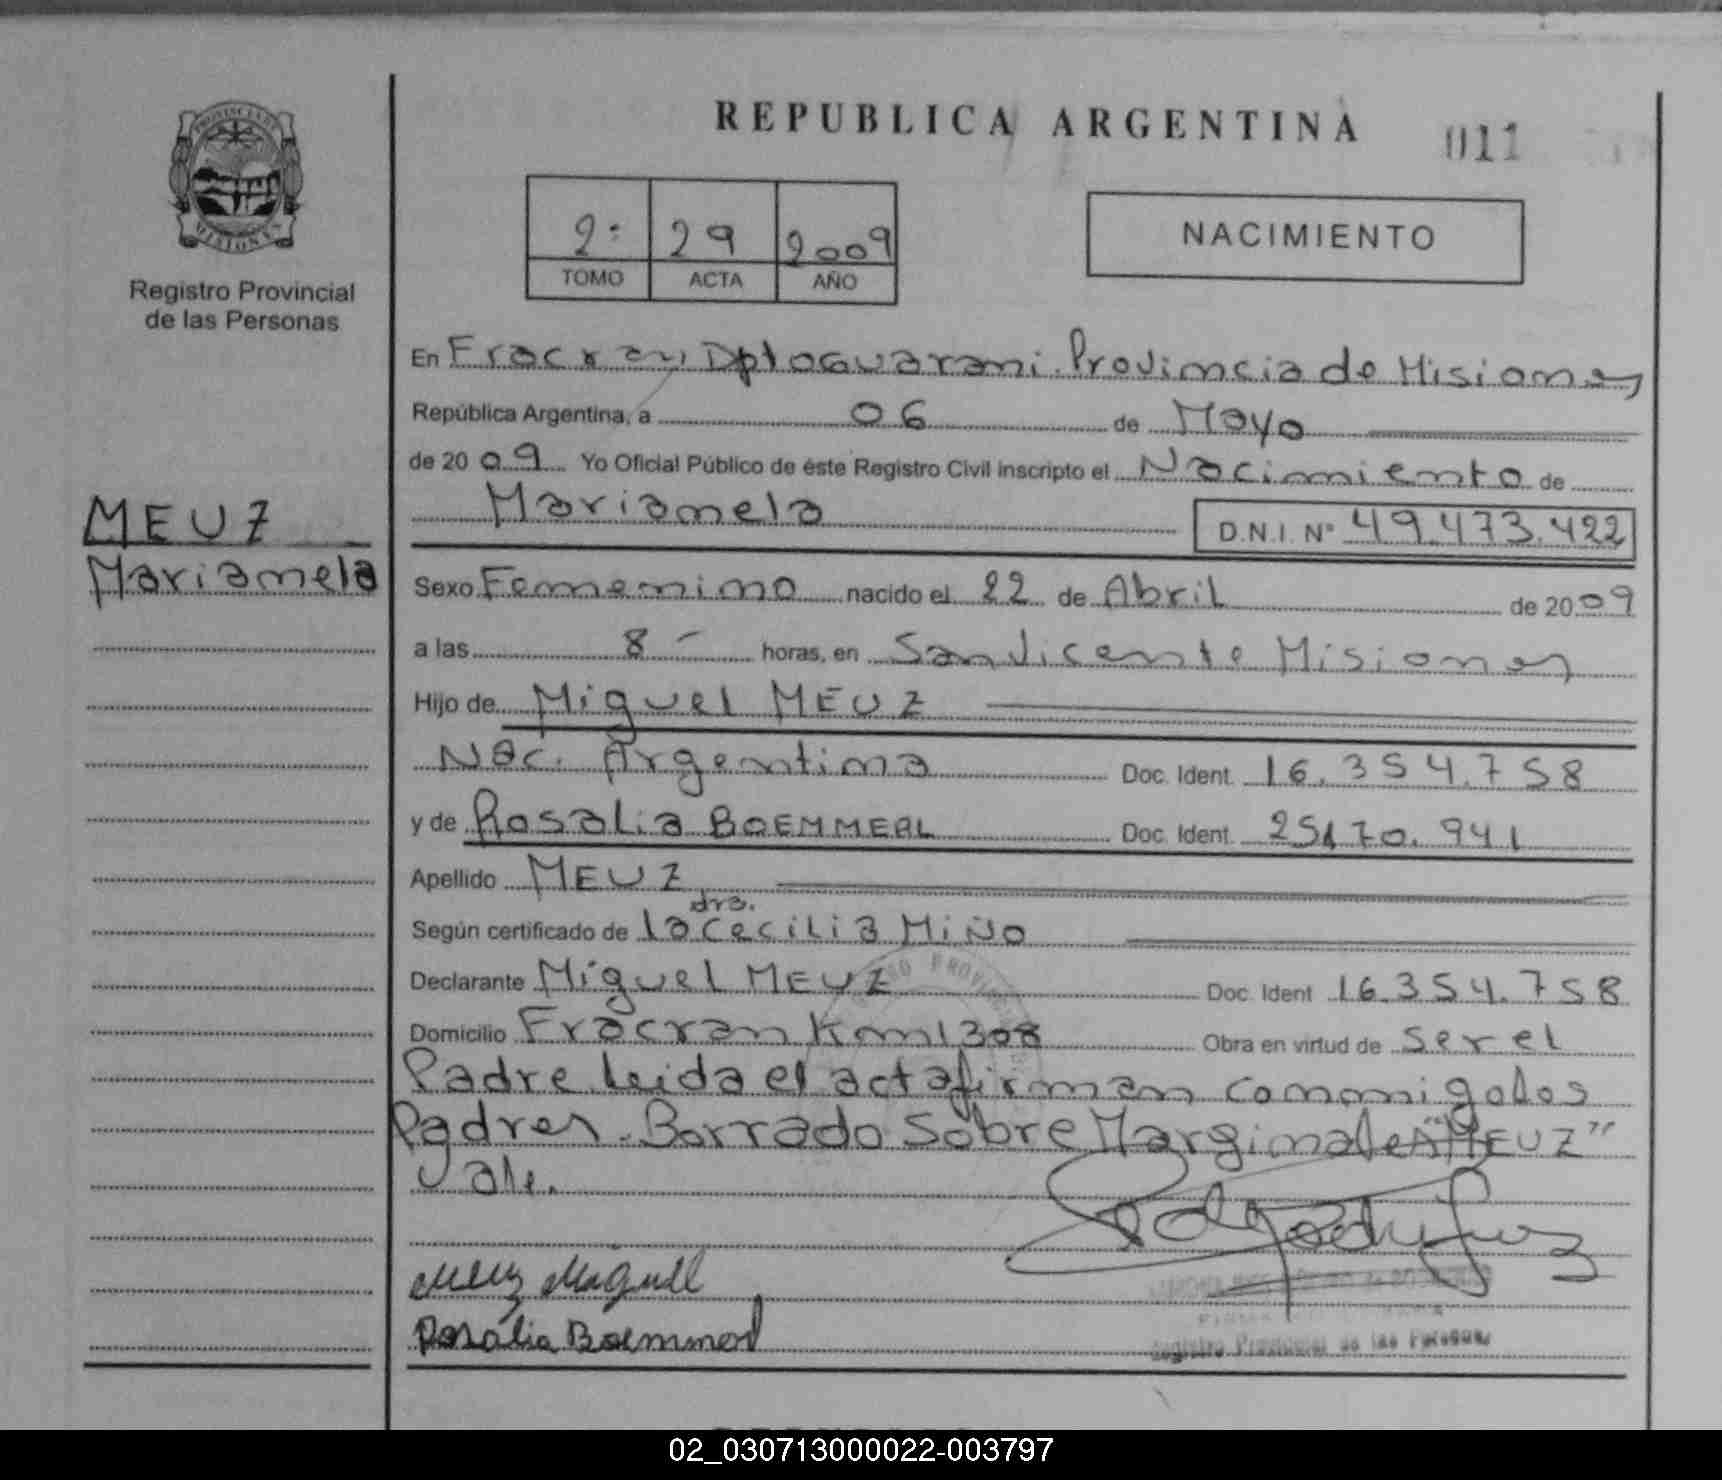 REPUBLICA ARGENTINA
011
PROVINCIA DE
MISIONES
Registro Provincial
de las Personas
2º 29 2009
TOMO ACTA AÑO
NACIMIENTO
En Fracran Dpto Guarani. Provincia de Misiones
República Argentina, a 06 de Mayo
de 20 09 Yo Oficial Público de éste Registro Civil inscripto el Nacimiento de
Marianela D.N.I. Nº 49.473.422
MEUZ
Marianela
Sexo Femenino nacido el 22 de Abril de 20 09
a las 8 - horas, en San Vicente Misiones
Hijo de Miguel MEUZ
Nac. Argentina Doc. Ident. 16.354.758
y de Rosalia BOEMMERL Doc. Ident. 25170.941
Apellido MEUZ
dra.
Según certificado de la Cecilia MIÑO
Declarante Miguel MEUZ Doc. Ident 16.354.758
Domicilio Fracran Km 1308 Obra en virtud de ser el
Padre leida el acta firman conmigo los
Padres. Borrado Sobre Marginal "MEUZ"
Vale.
Meuz Miguel
Rosalia Boemmerl
Registro Provincial de las Personas
02_030713000022-003797